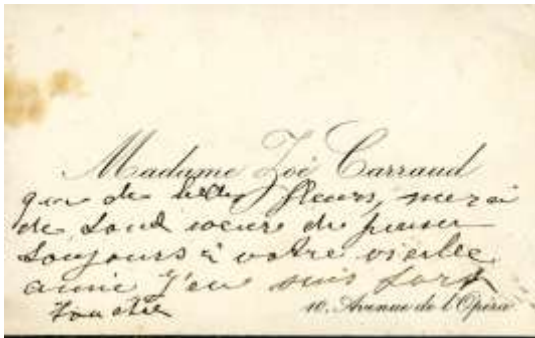 Madame Zoé Carraud
que de belles fleurs, merci
de tout coeur de penser
toujours à votre vieille
amie j'en suis fort
touchée
10, Avenue de l'Opéra